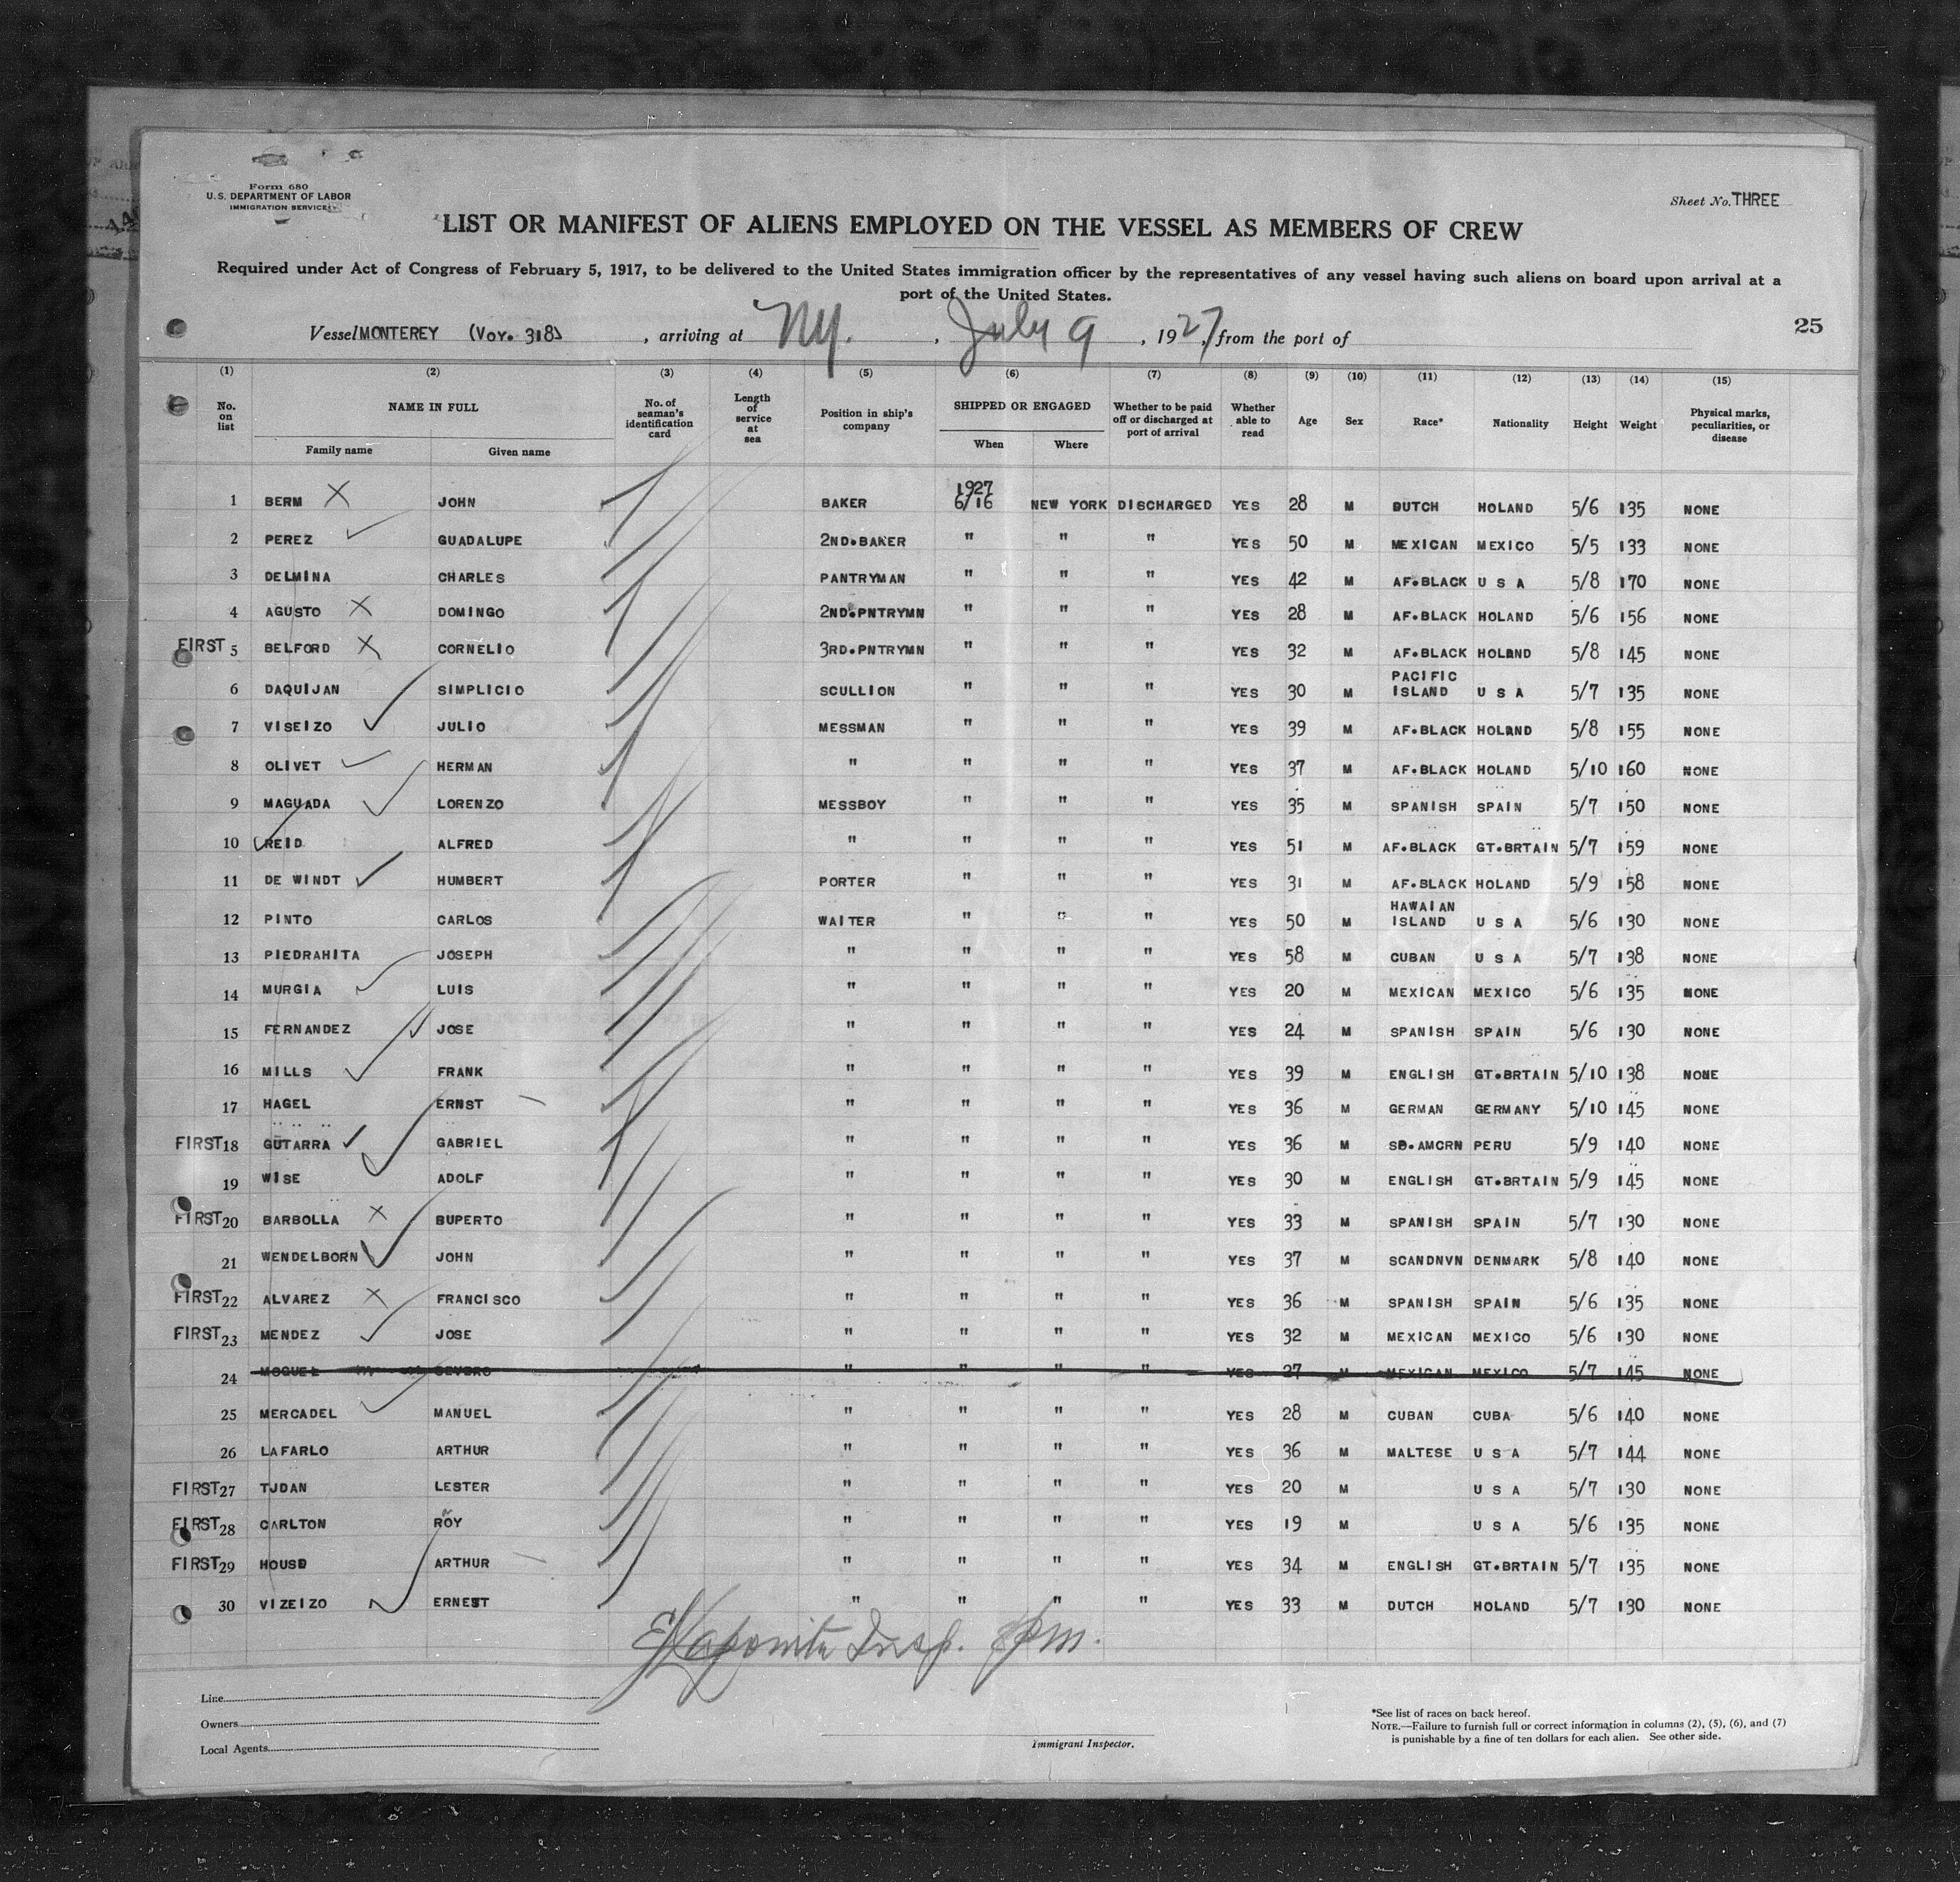 Form 680
U. S. DEPARTMENT OF LABOR
IMMIGRATION SERVICE
Sheet No. THREE
LIST OR MANIFEST OF ALIENS EMPLOYED ON THE VESSEL AS MEMBERS OF CREW
Required under Act of Congress of February 5, 1917, to be delivered to the United States immigration officer by the representatives of any vessel having such aliens on board upon arrival at a
port of the United States.
Vessel MONTEREY (Voy. 318) , arriving at N.Y. , July 9 , 1927, from the port of
25
(1) (2) (3) (4) (5) (6) (7) (8) (9) (10) (11) (12) (13) (14) (15)
No. on list NAME IN FULL No. of seaman's identification card Length of service at sea Position in ship's company SHIPPED OR ENGAGED Whether to be paid off or discharged at port of arrival Whether able to read Age Sex Race* Nationality Height Weight Physical marks, peculiarities, or disease
Family name Given name When Where
1927
1 BERM X JOHN BAKER 6/16 NEW YORK DISCHARGED YES 28 M DUTCH HOLAND 5/6 135 NONE
2 PEREZ GUADALUPE 2ND.BAKER " " " YES 50 M MEXICAN MEXICO 5/5 133 NONE
3 DELMINA CHARLES PANTRYMAN " " " YES 42 M AF.BLACK U S A 5/8 170 NONE
4 AGUSTO X DOMINGO 2ND.PNTRYMN " " " YES 28 M AF.BLACK HOLAND 5/6 156 NONE
FIRST 5 BELFORD X CORNELIO 3RD.PNTRYMN " " " YES 32 M AF.BLACK HOLAND 5/8 145 NONE
6 DAQUIJAN SIMPLICIO SCULLION " " " YES 30 M PACIFIC ISLAND U S A 5/7 135 NONE
7 VISEIZO JULIO MESSMAN " " " YES 39 M AF.BLACK HOLAND 5/8 155 NONE
8 OLIVET HERMAN " " " " YES 37 M AF.BLACK HOLAND 5/10 160 NONE
9 MAGUADA LORENZO MESSBOY " " " YES 35 M SPANISH SPAIN 5/7 150 NONE
10 REID ALFRED " " " " YES 51 M AF.BLACK GT.BRTAIN 5/7 159 NONE
11 DE WINDT HUMBERT PORTER " " " YES 31 M AF.BLACK HOLAND 5/9 158 NONE
12 PINTO CARLOS WAITER " " " YES 50 M HAWAIAN ISLAND U S A 5/6 130 NONE
13 PIEDRAHITA JOSEPH " " " " YES 58 M CUBAN U S A 5/7 138 NONE
14 MURGIA LUIS " " " " YES 20 M MEXICAN MEXICO 5/6 135 NONE
15 FERNANDEZ JOSE " " " " YES 24 M SPANISH SPAIN 5/6 130 NONE
16 MILLS FRANK " " " " YES 39 M ENGLISH GT.BRTAIN 5/10 138 NONE
17 HAGEL ERNST " " " " YES 36 M GERMAN GERMANY 5/10 145 NONE
FIRST 18 GUTARRA GABRIEL " " " " YES 36 M SO.AMCRN PERU 5/9 140 NONE
19 WISE ADOLF " " " " YES 30 M ENGLISH GT.BRTAIN 5/9 145 NONE
FIRST 20 BARBOLLA X BUPERTO " " " " YES 33 M SPANISH SPAIN 5/7 130 NONE
21 WENDELBORN JOHN " " " " YES 37 M SCANDNVN DENMARK 5/8 140 NONE
FIRST 22 ALVAREZ X FRANCISCO " " " " YES 36 M SPANISH SPAIN 5/6 135 NONE
FIRST 23 MENDEZ JOSE " " " " YES 32 M MEXICAN MEXICO 5/6 130 NONE
24 MOGUEL SEVERO " " " " YES 27 M MEXICAN MEXICO 5/7 145 NONE
25 MERCADEL MANUEL " " " " YES 28 M CUBAN CUBA 5/6 140 NONE
26 LAFARLO ARTHUR " " " " YES 36 M MALTESE U S A 5/7 144 NONE
FIRST 27 TJDAN LESTER " " " " YES 20 M U S A 5/7 130 NONE
FIRST 28 CARLTON ROY " " " " YES 19 M U S A 5/6 135 NONE
FIRST 29 HOUSD ARTHUR " " " " YES 34 M ENGLISH GT.BRTAIN 5/7 135 NONE
30 VIZEIZO ERNEST " " " " YES 33 M DUTCH HOLAND 5/7 130 NONE
Insp.
Line
Owners
Local Agents
Immigrant Inspector.
*See list of races on back hereof.
NOTE.—Failure to furnish full or correct information in columns (2), (5), (6), and (7)
is punishable by a fine of ten dollars for each alien. See other side.